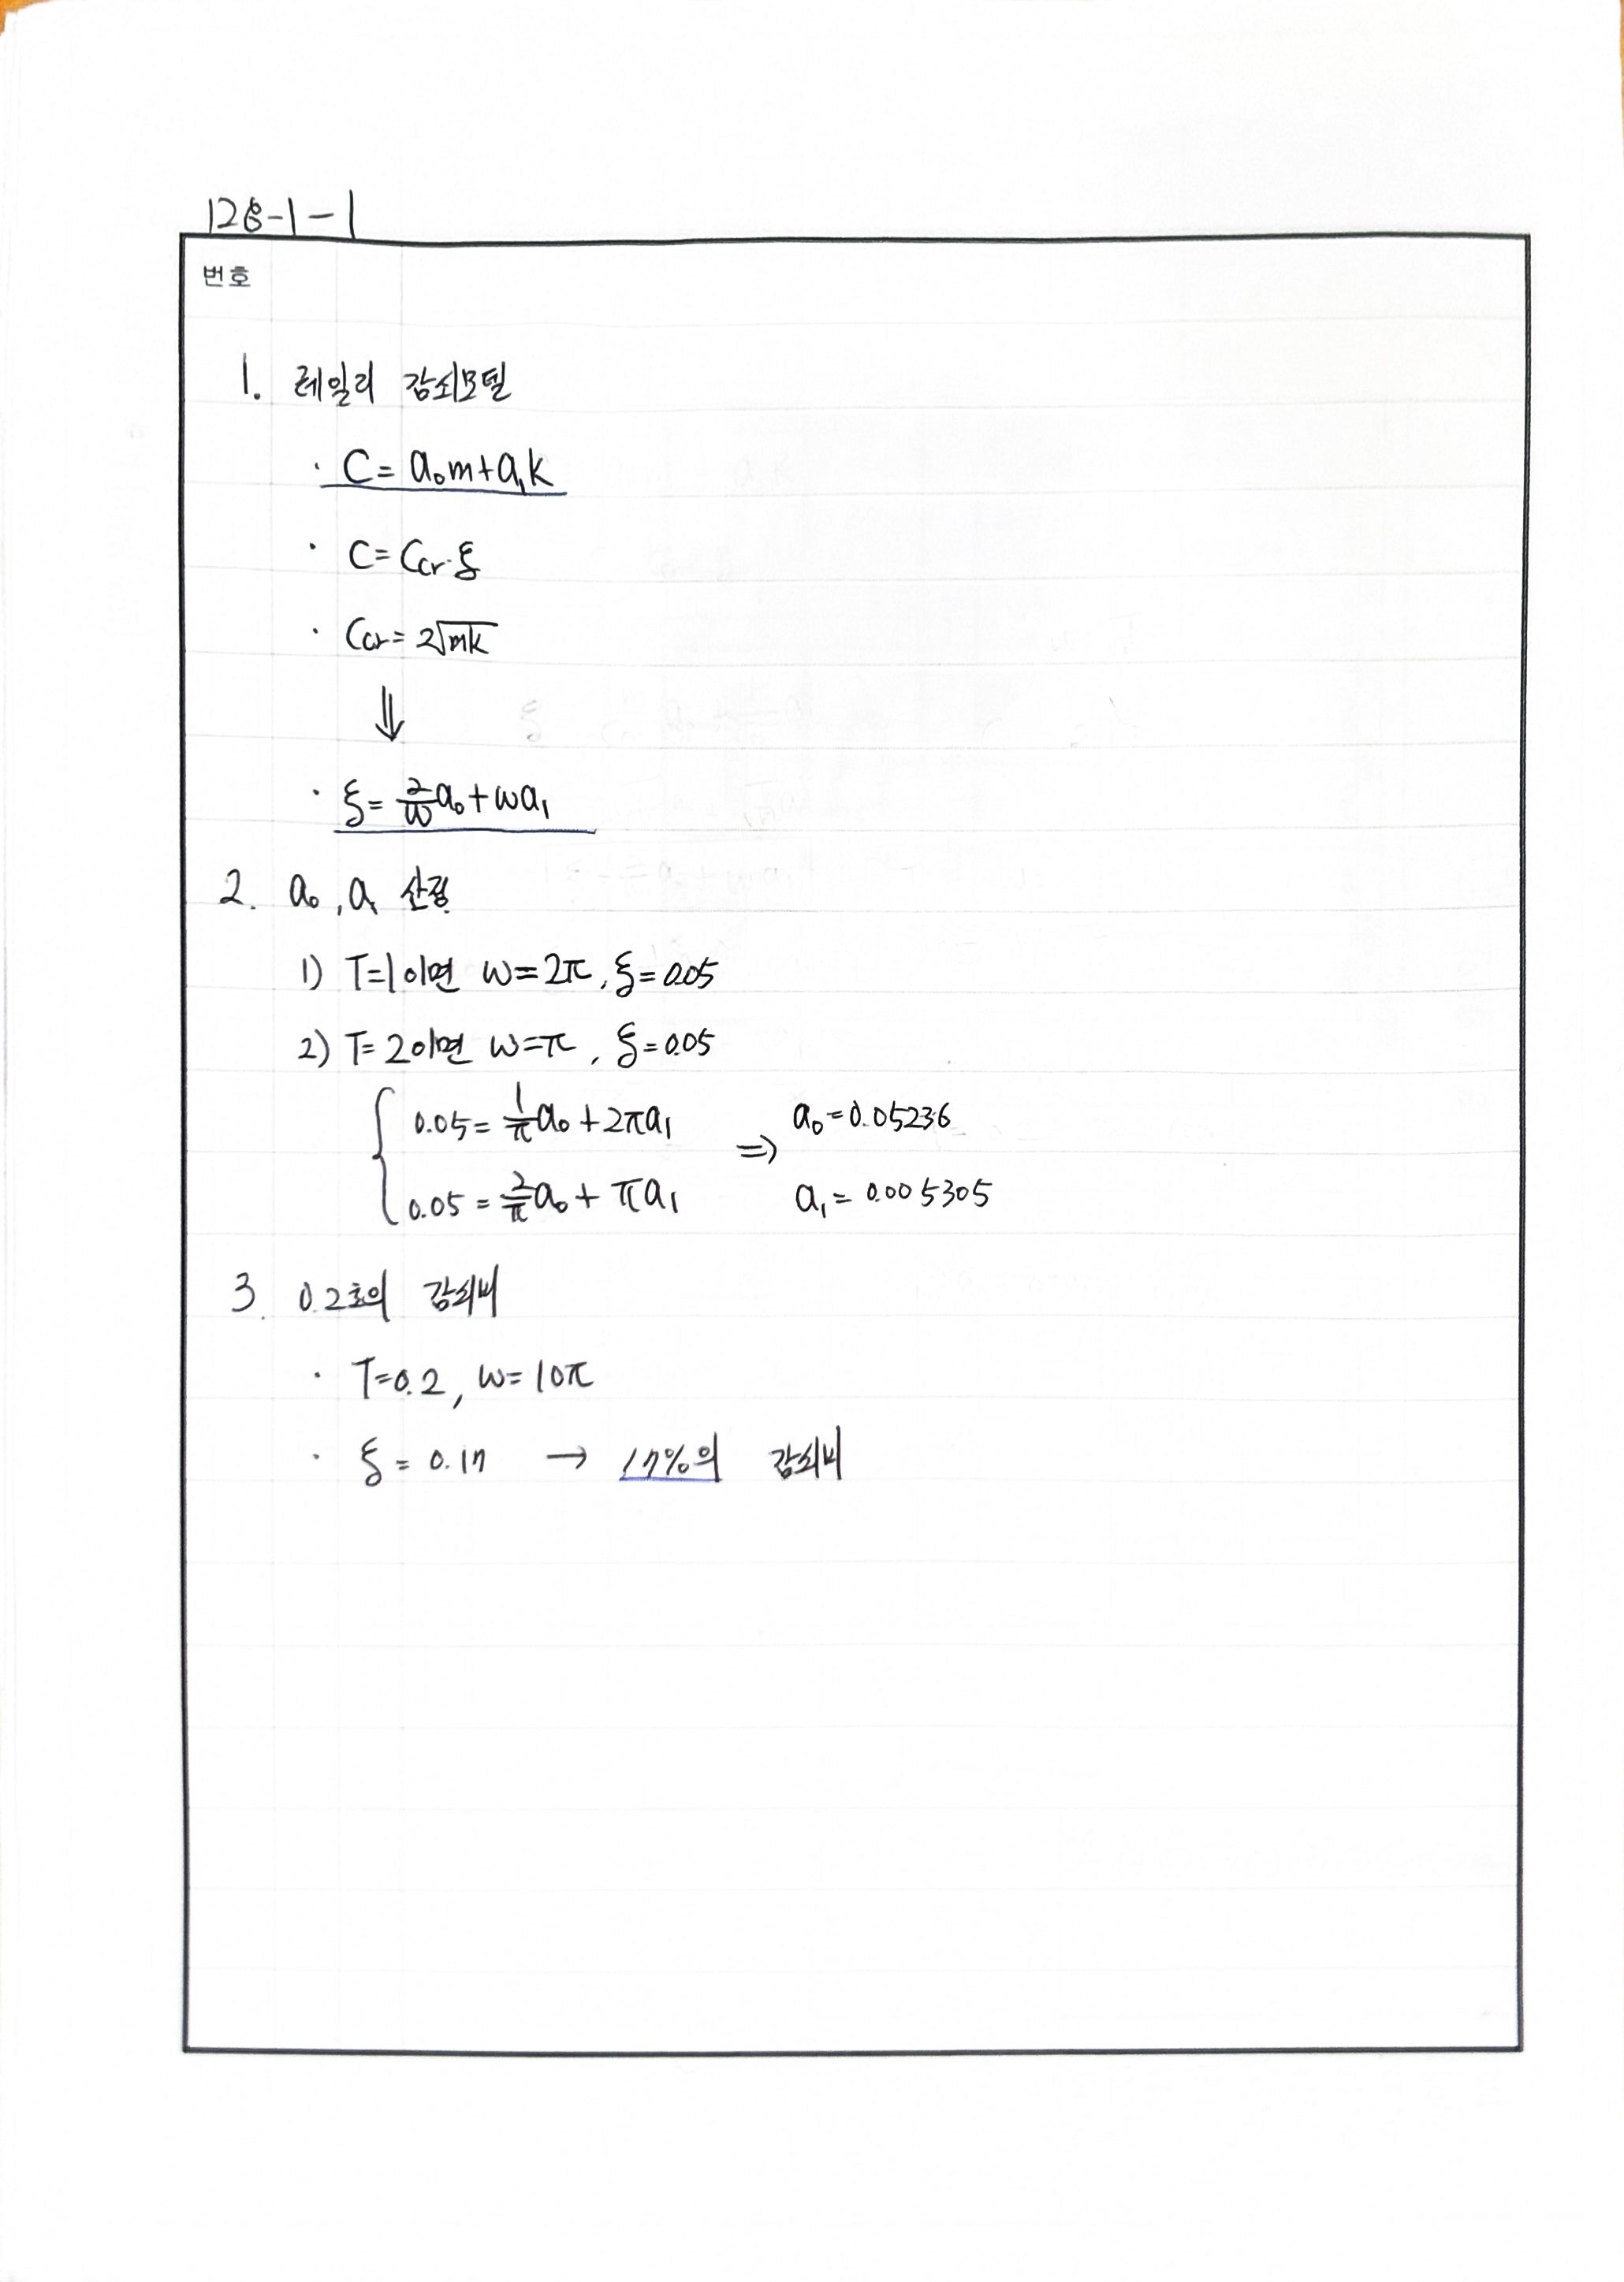 128-1-1
번호
1. 레일리 감쇠모델
· C= a₀m+a₁k
· C= Ccr·ξ
· Ccr= 2√mk
⇓
· ξ= 2/ω a₀+ωa₁
2. a₀, a₁ 산정
1) T=1이면 ω=2π, ξ=0.05
2) T=2이면 ω=π, ξ=0.05
0.05= 1/π a₀+2πa₁ ⇒ a₀=0.05236
0.05= 2/π a₀+πa₁ a₁=0.005305
3. 0.2초의 감쇠비
· T=0.2, ω=10π
· ξ=0.17 → 17%의 감쇠비